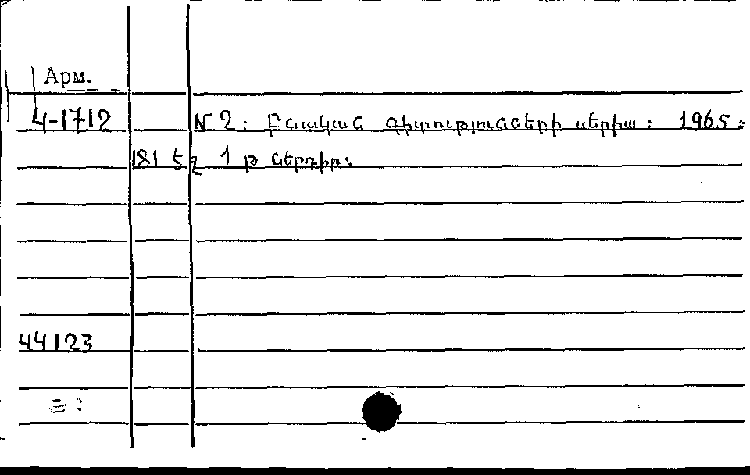 Арм.
4-1712 N 2: Բնական գիտությունների սերիա: 1965:
181 էջ 1 թ ներդիր:
44123